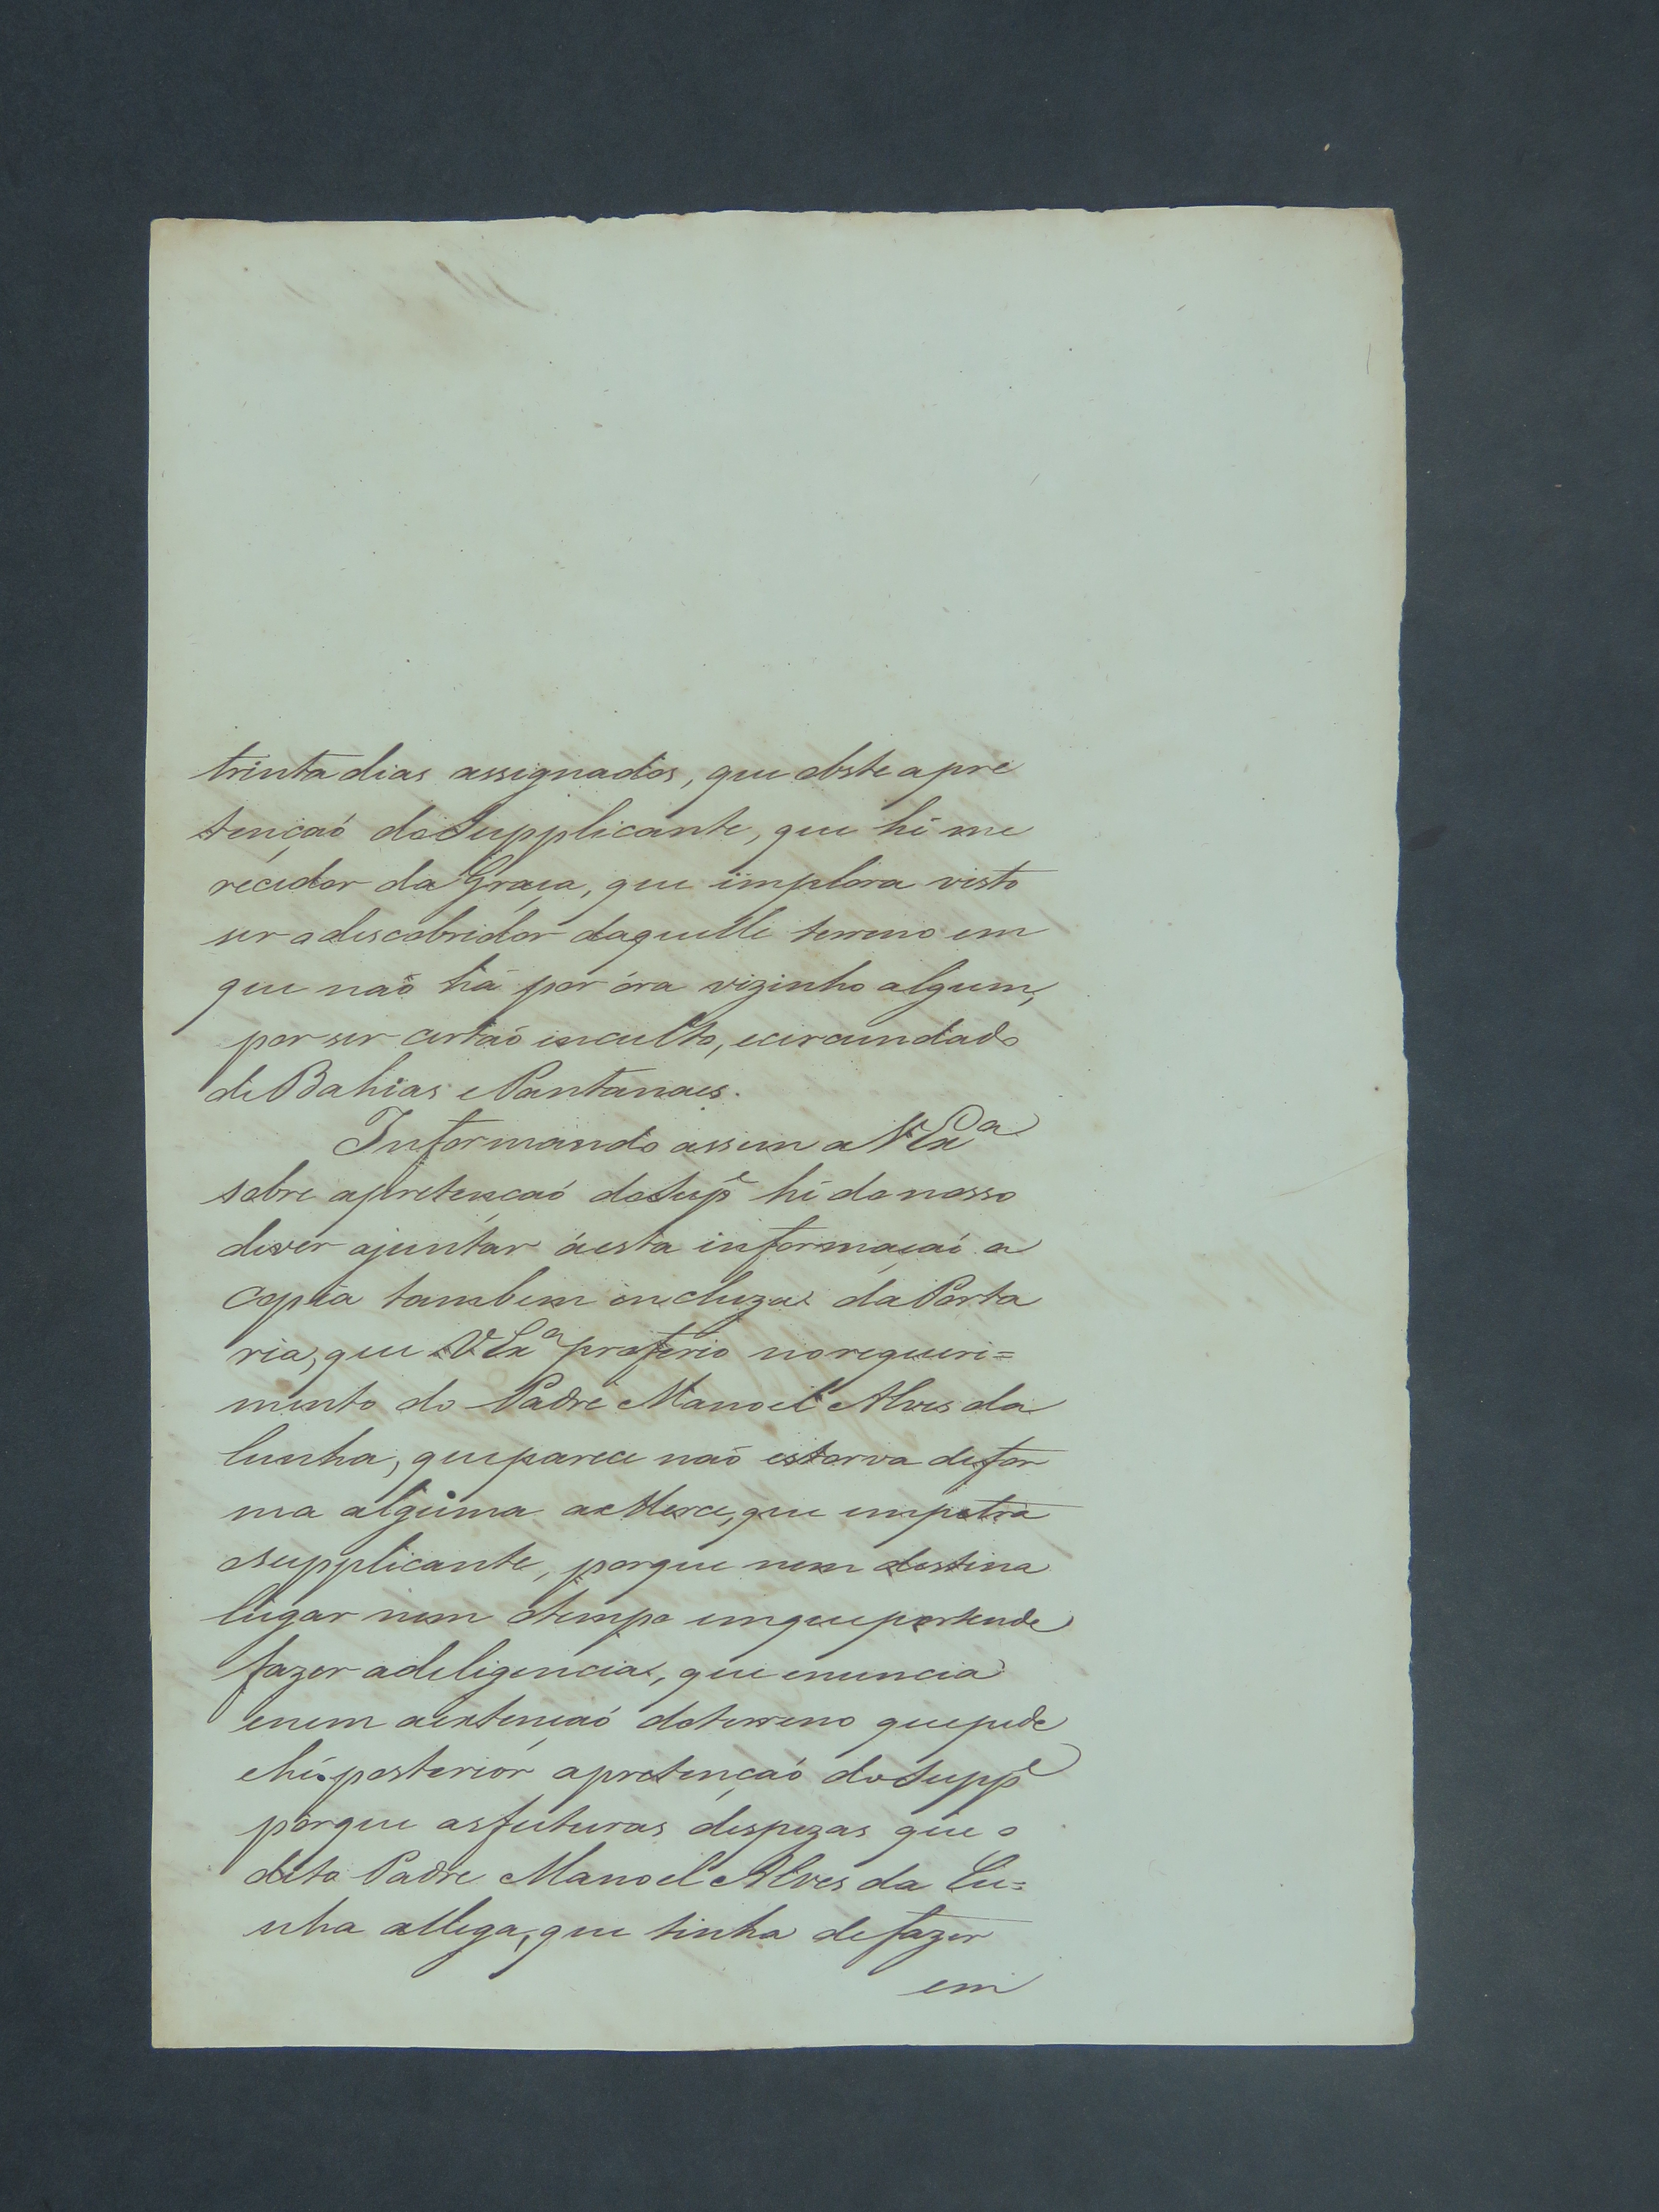 trinta dias assignados, que obste apre
tençaõ doSupplicante, que hé me
recedor da Graça, que implora visto
ser odescobridor daquelle terreno em
que naõ há por óra vizinho algum,
por ser certaõ inculto, ecircumdado
de Bahias ePantanaes.
Informando assim a V Exª
sobre apretençaõ doSupᵉ hé do nosso
dever ajuntar áesta informaçaõ a
Copia tambem incluza daPorta
ria, que V Exª proferio norequeri=
mento do Padre Manoel Alves da
Cunha, queparece naõ estorva defor
ma alguma aMerce, que impetra
oSupplicante, porque nem destina
lugar nem otempo emquepertende
fazer adeligencia, que enuncia
enem aextençaõ doterreno quepede
ehé posterior apretençaõ doSuppᵉ
porque asfuturas despezas que o
dito Padre Manoel Alves da Cu=
nha allega, que tinha defazer
em